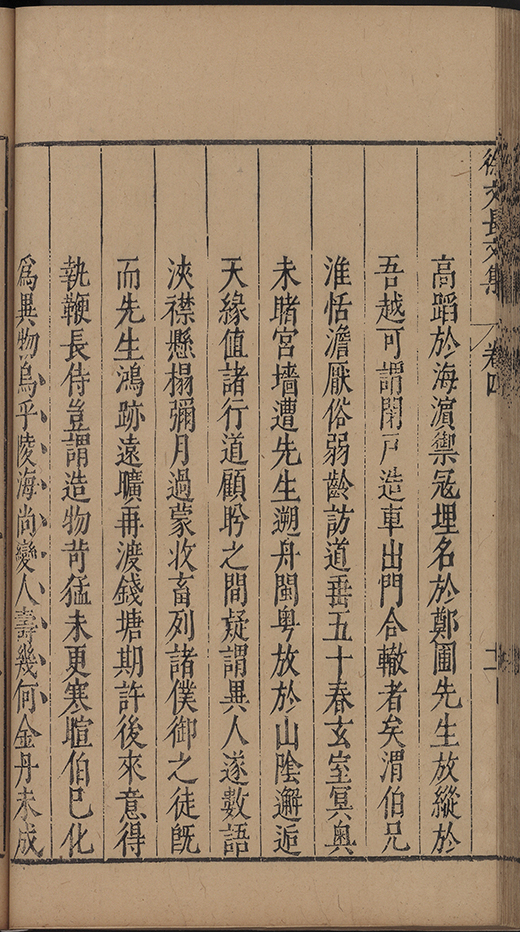 徐文長文集 卷四 十一
高蹈於海濵禦冦埋名於鄭圃先生放縱於
吾越可謂閉戸造車出門合轍者矣渭伯兄
淮恬澹厭俗弱齡訪道垂五十春玄室冥奥
未睹宮墻遭先生遡舟閩粤放於山陰邂逅
天緣値諸行道顧盻之間疑謂異人遂數語
浹襟懸榻彌月過蒙收畜列諸僕御之徒旣
而先生鴻跡遠曠再渡錢塘期許後來意得
執鞭長侍豈謂造物苛猛未更寒暄伯已化
爲異物烏乎陵海尚變人壽幾何金丹未成